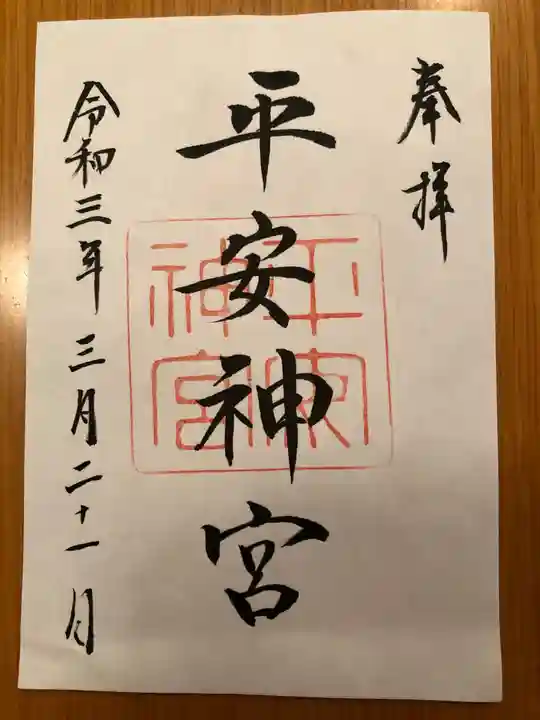 奉拝
平安神宮
平安神宮
令和三年三月二十一日